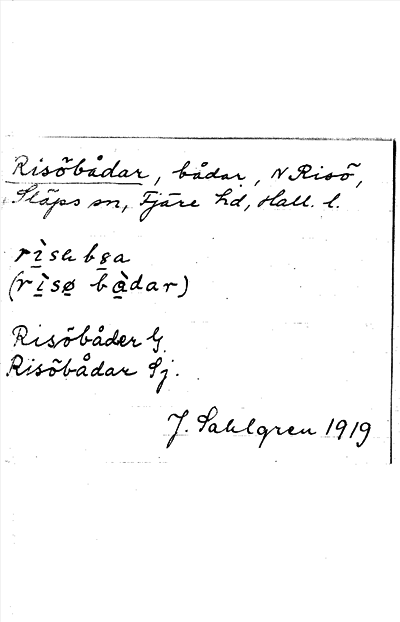 Risöbådar, bådar, N Risö,
Släps sn, Fjäre hd, Hall. l.
(rìsø bådar)
Risöbåder G
Risöbådar Sj.
J. Sahlgren 1919